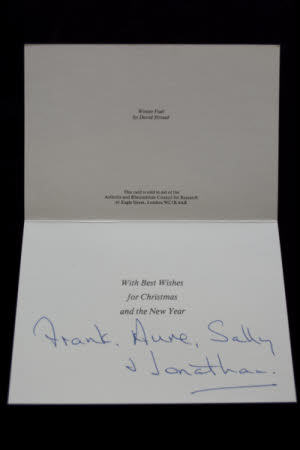 Winter Fuel
by David Stroud
This card is sold in aid of the
Arthritis and Rheumatism Council for Research
41 Eagle Street, London WC1R 4AR
With Best Wishes
for Christmas
and the New Year
Frank, Sally
& Jonathan.